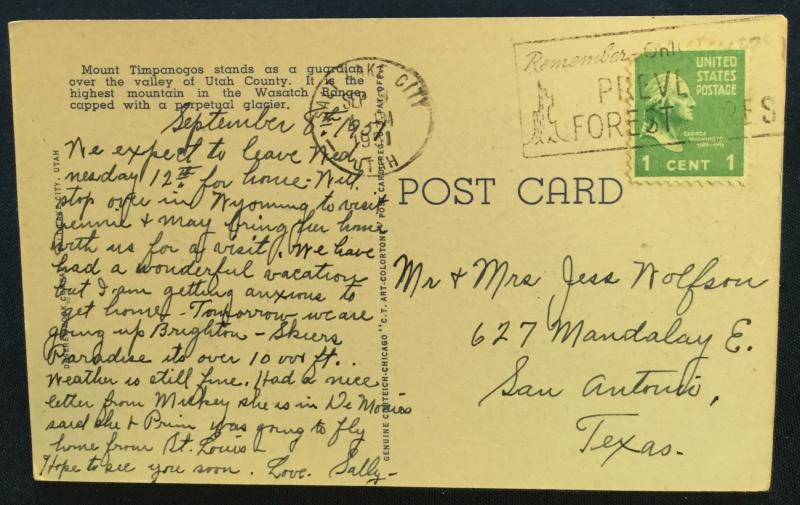 Mount Timpanogos stands as a guardian
over the valley of Utah County. It is the
highest mountain in the Wasatch Range,
capped with a perpetual glacier.
September 8th, 1951
We expect to leave Wed
nesday 12th for home. Will
stop over in Wyoming to visit
& may bring her home
with us for a visit. We have
had a wonderful vacation
but I am getting anxious to
get home - Tomorrow we are
going up Brighton - Skiers
Paradise its over 10 000 ft..
Weather is still fine. Had a nice
letter from Mickey she is in De Moines
said she & Prim was going to fly
home from St. Louis -
Hope to see you soon. Love. Sally -
CITY, UTAH
GENUINE CURTEICH-CHICAGO "C.T. ART-COLORTONE" POST CARD (REG. U.S. PAT. OFF.)
LAKE CITY
SEP
1951
UTAH
Remember - Only
PREVE
FOREST RES
UNITED
STATES
POSTAGE
GEORGE
WASHINGTON
1789-1797
1 CENT 1
POST CARD
Mr & Mrs Jess Wolfson
627 Mandalay E.
San Antonio,
Texas.